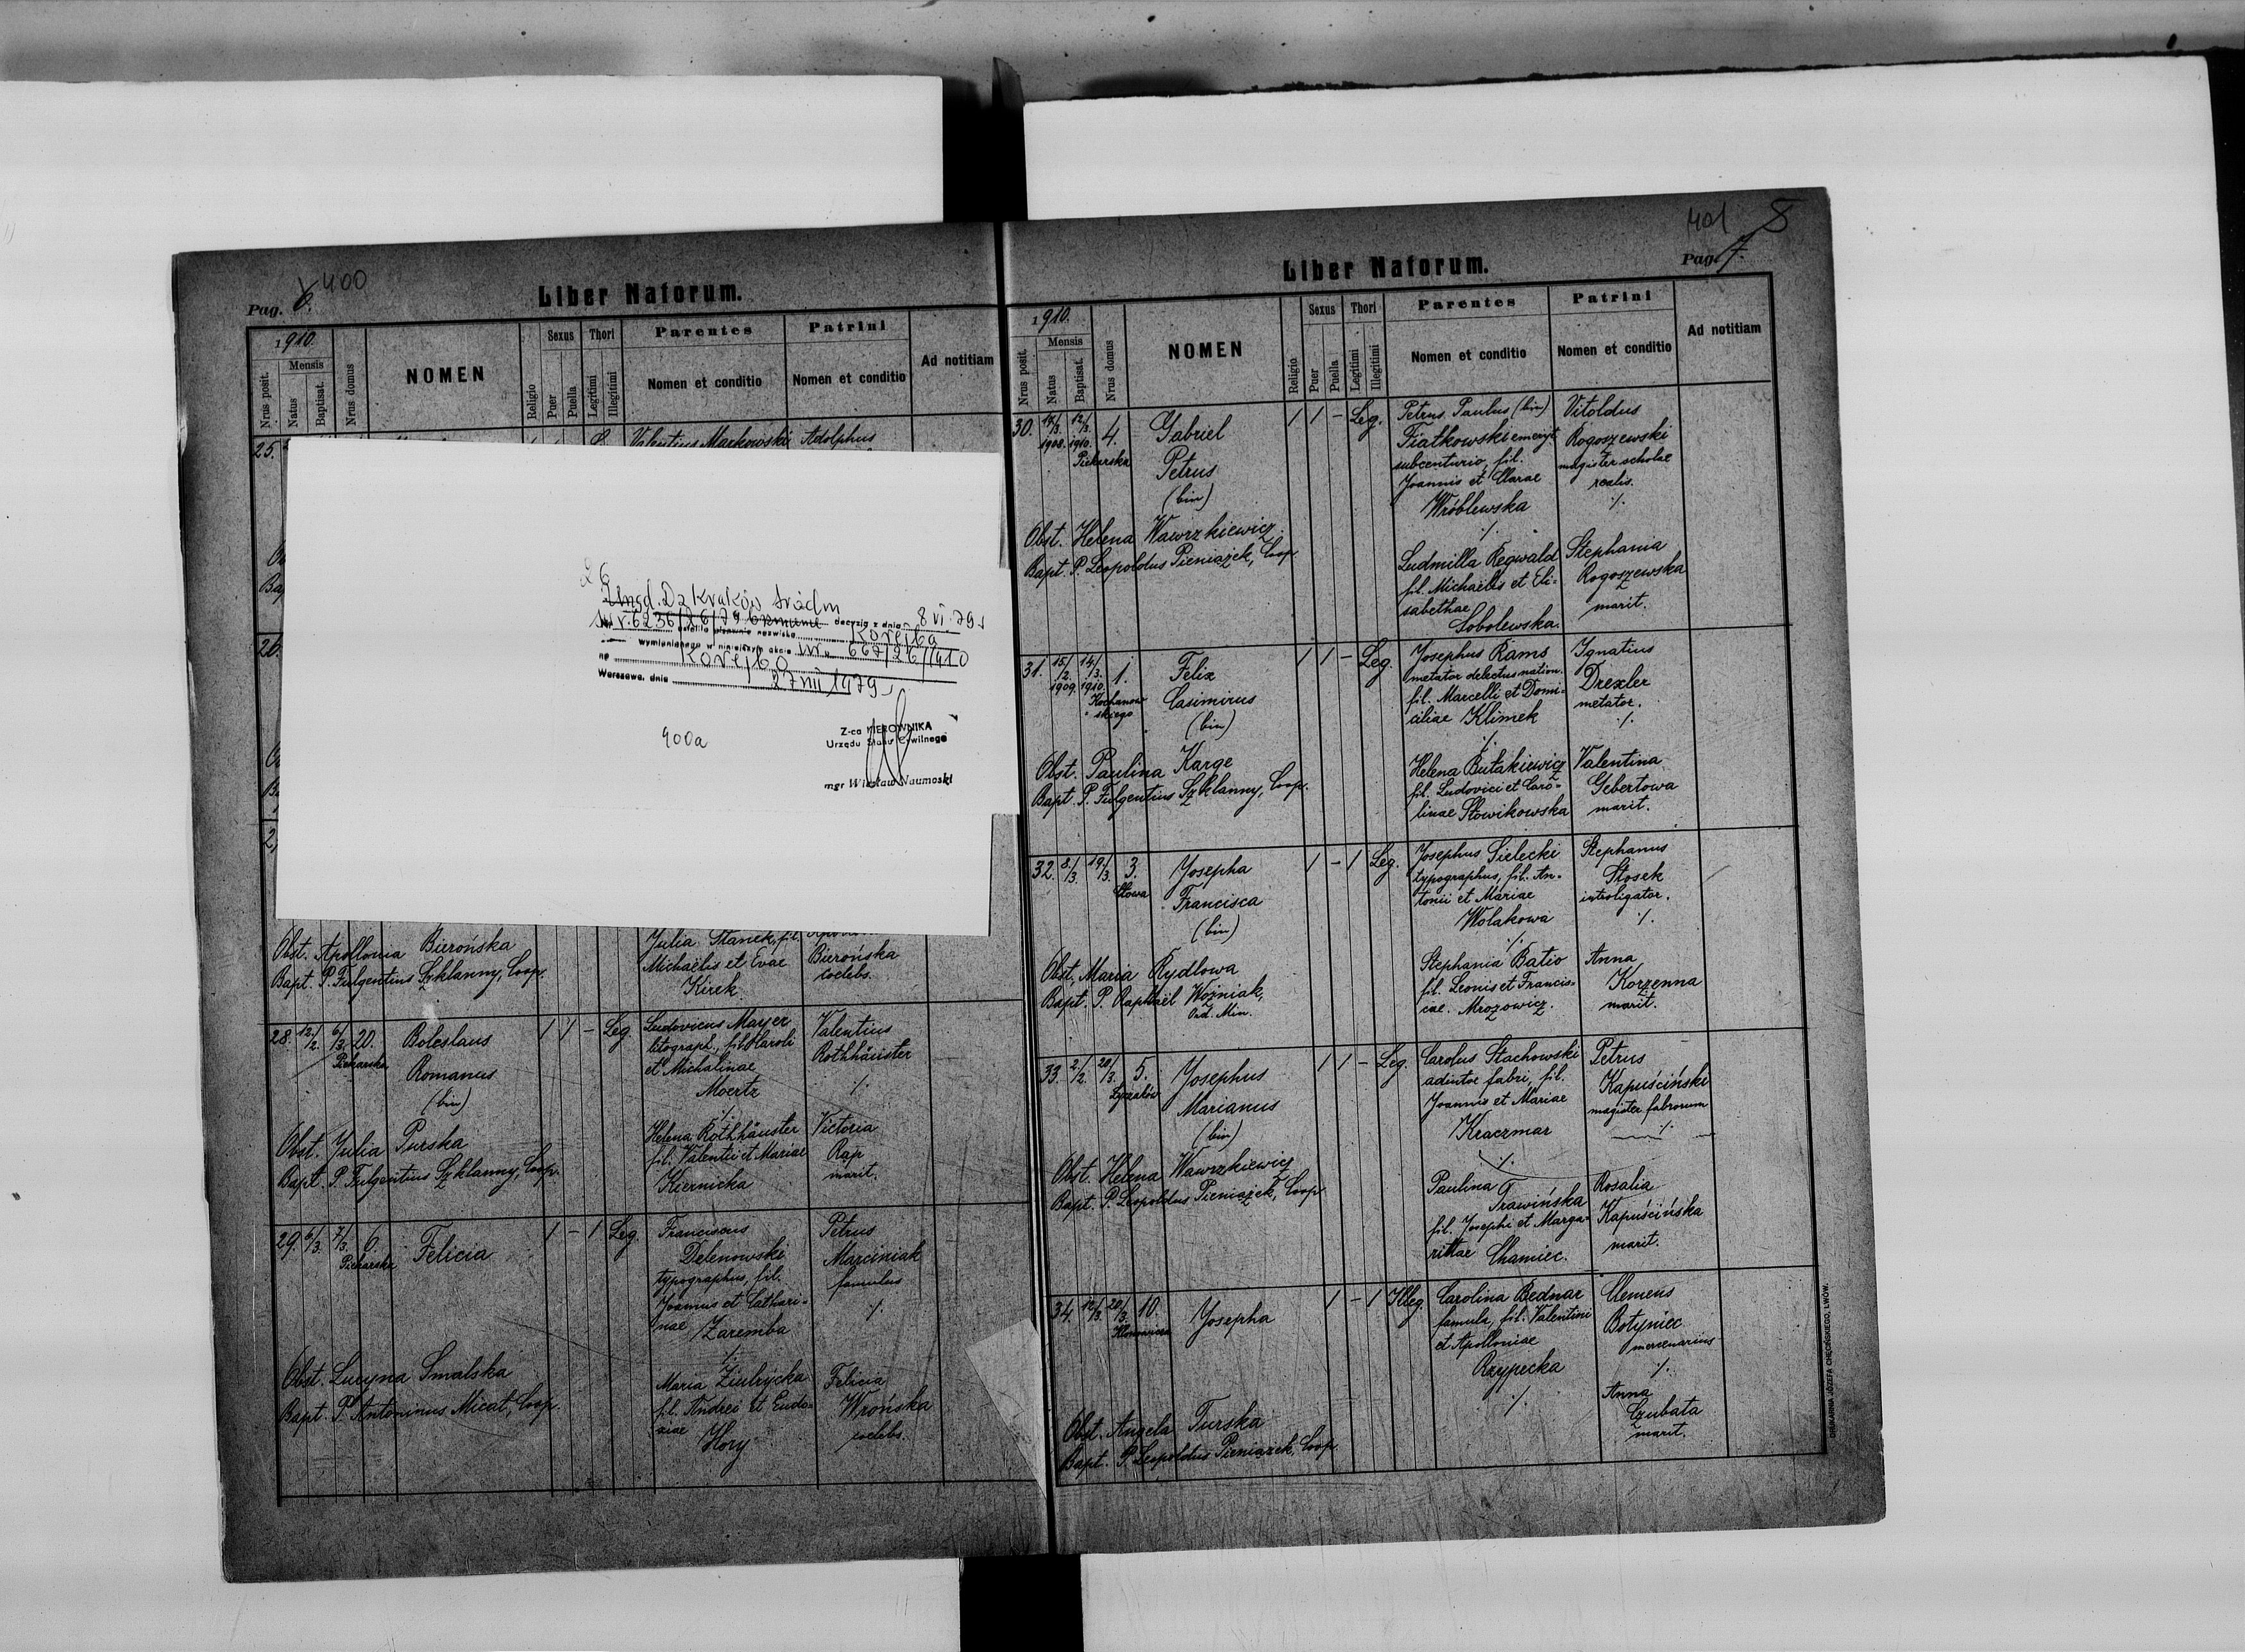 400
Pag. 6.
Liber Natorum.
1910.
Mensis
Nrus posit.
Natus
Baptisat.
Nrus domus
NOMEN
Religio
Sexus
Puer
Puella
Thori
Legitimi
Illegitimi
Parentes
Nomen et conditio
Patrini
Nomen et conditio
Ad notitiam
25.
Valentius Markowski
Adolphus
26.
Urząd. Dz Kraków Śródm
decyzją z dnia 8 VI. 79
ustalił pisownię nazwiska Korejba
wymienionego w niniejszym akcie nr. 667/26/910
na Korejbo
Warszawa, dnia 27 VII 1979
400a
Z-ca KIEROWNIKA
Urzędu Stanu Cywilnego
mgr Wiesław Naumoski
Obst. Apollonia Bierońska
Bapt. P. Fulgentius Szklanny, Coop.
Julia Stanek, fil.
Michaëlis et Evae
Kirek
Bierońska
coelebs.
28. 12/2. 6/3. 20.
Piekarska
Boleslaus
Romanus
(bin)
1 1 - Leg.
Ludovicus Mayer
litograph., fil. Karoli
et Michalinae
Moertz
./.
Helena Rothhäuster
fil. Valentii et Mariae
Kiernicka
Valentius
Rothhäuster
./.
Victoria
Rap
marit.
Obst. Julia Purska
Bapt. P. Fulgentius Szklanny, Coop.
29. 6/3. 7/3. 6.
Piekarska
Felicia
1 - 1 Leg.
Franciscus
Delenowski
typographus, fil.
Joannis et Cathari-
nae Zaremba
./.
Maria Ziubrycka
fil. Andrei et Eudo-
xiae
Hory
Petrus
Marciniak
famulus
./.
Felicia
Wrońska
coelebs.
Obst. Lucyna Smalska
Bapt. P. Antoninus Micat, Coop.
401
8
Pag. 7.
Liber Natorum.
1910.
Mensis
Nrus posit.
Natus
Baptisat.
Nrus domus
NOMEN
Religio
Sexus
Puer
Puella
Thori
Legitimi
Illegitimi
Parentes
Nomen et conditio
Patrini
Nomen et conditio
Ad notitiam
30. 4.
1908. 1910.
Piekarska
Gabriel
Petrus
(bin)
1 1 - Leg.
Petrus Paulus (bin)
Fiatkowski emeryt.
subcenturio, fil.
Joannis et Clarae
Wróblewska
./.
Ludmilla Regwald
fil. Michaëlis et Eli-
sabethae
Sobolewska.
Vitoldus
Rogoszewski
magister scholae
realis.
./.
Stephania
Rogoszewska
marit.
Obst. Helena Wawrzkiewicz
Bapt. P. Leopoldus Pieniążek, Coop.
31. 15/2. 14/3. 1.
1909. 1910.
Kochanow-
skiego
Felix
Casimirus
(bin)
1 1 - Leg.
Josephus Rams
metator delectus nation.
fil. Marcelli et Domi-
ciliae Klimek
./.
Helena Butakiewicz
fil. Ludovici et Caro-
linae Słowikowska
Ignatius
Drexler
metator.
./.
Valentina
Gebertowa
marit.
Obst. Paulina Karge
Bapt. P. Fulgentius Szklanny, Coop.
32. 8/3. 19/3. 3.
Josepha
Francisca
(bin)
1 - 1 Leg.
Josephus Sielecki
typographus, fil. An-
tonii et Mariae
Wolakowa
./.
Stephania Batio
fil. Leonis et Francis-
cae. Mrozowicz.
Stephanus
Stosek
introligator.
./.
Anna
Korzenna
marit.
Obst. Maria Rydlowa
Bapt. P. Raphaël Woźniak,
Ord. Min.
33. 2/2. 20/3. 5.
Łyczaków
Josephus
Marianus
(bin)
1 1 - Leg.
Carolus Stachowski
adiutor fabri, fil.
Joannis et Mariae
Kraczmar
./.
Paulina
Trawińska
fil. Josephi et Marga-
rittae Chamiec.
Petrus
Kapuściński
magister fabrorum
./.
Rosalia
Kapuścińska
marit.
Obst. Helena Wawrzkiewicz
Bapt. P. Leopoldus Pieniążek, Coop.
34. 20/3. 10.
Josepha
1 - 1 Illeg.
Carolina Bednar
famula, fil. Valentini
et Apolloniae
Rzypecka
./.
Clemens
Botyniec
mercenarius
./.
Anna
Czubata
marit.
Obst. Angela Turska
Bapt. P. Leopoldus Pieniążek, Coop.
DRUKARNIA JÓZEFA CHĘCIŃSKIEGO, LWÓW.